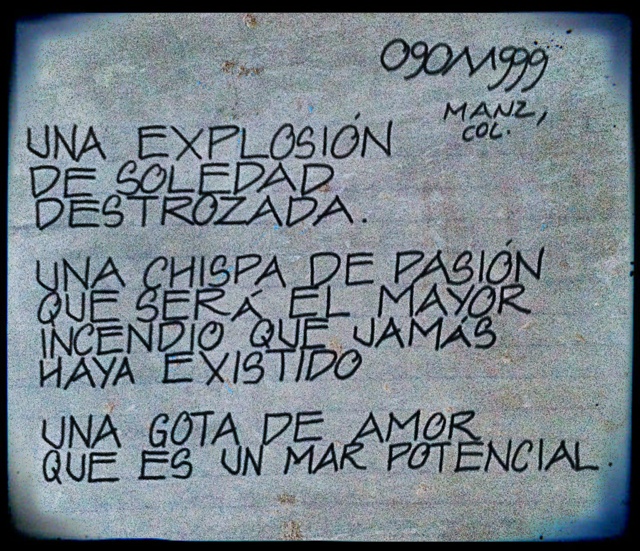 09011999
MANZ,
COL.
UNA EXPLOSIÓN
DE SOLEDAD
DESTROZADA.
UNA CHISPA DE PASIÓN
QUE SERÁ EL MAYOR
INCENDIO QUE JAMÁS
HAYA EXISTIDO
UNA GOTA DE AMOR
QUE ES UN MAR POTENCIAL.